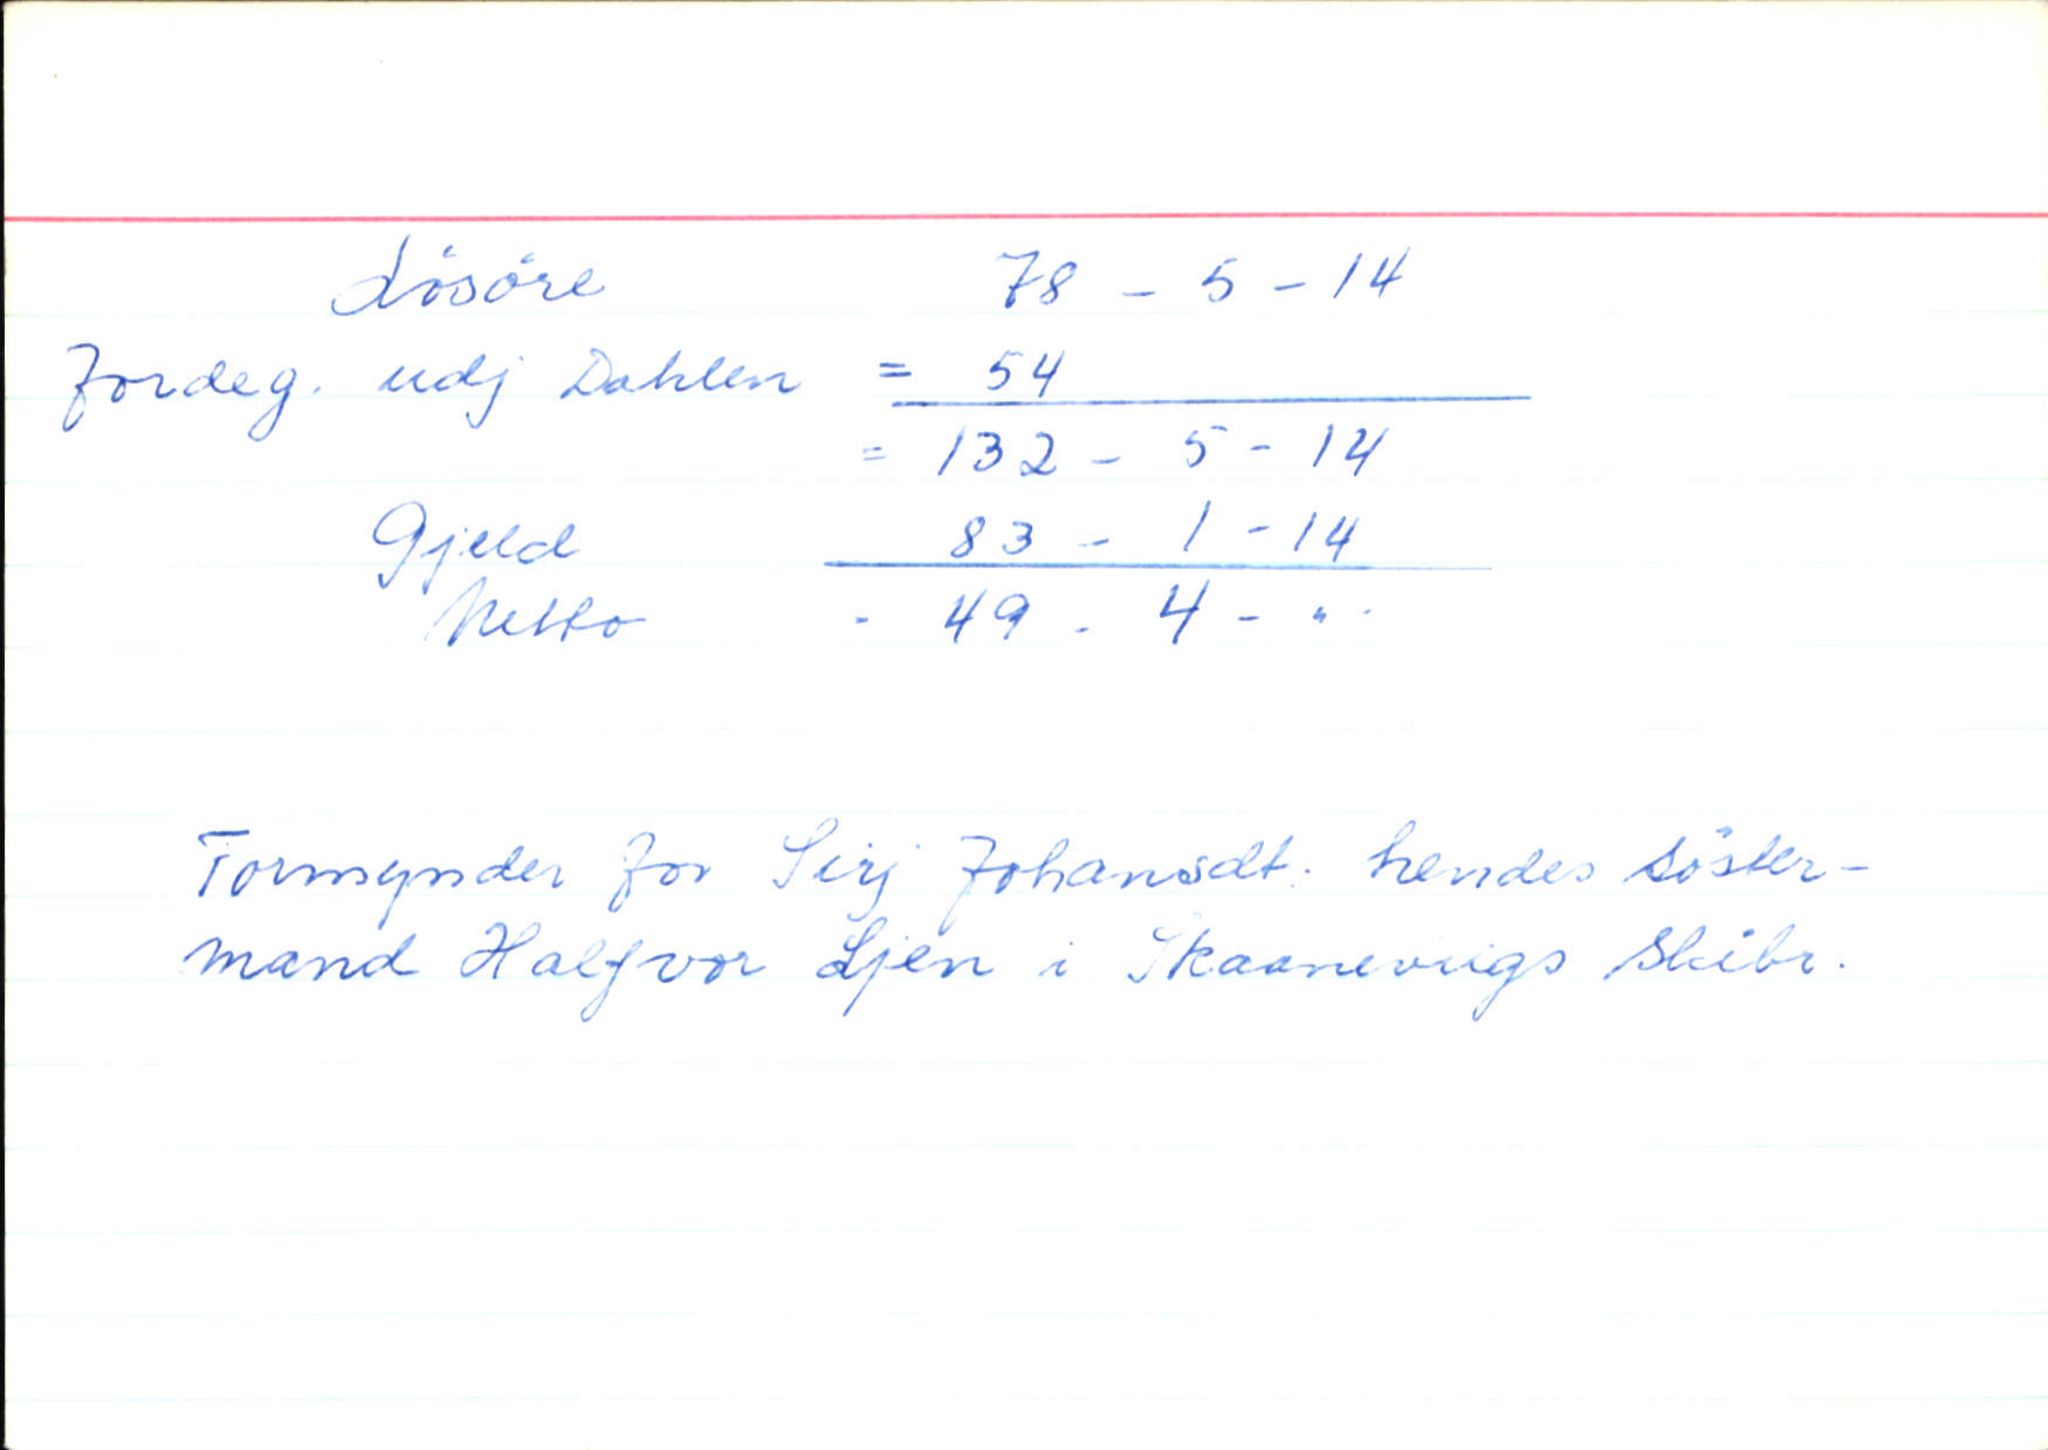 Lösöre 78 - 5 - 14
Jordeg. udj Dahlen = 54
= 132 - 5 - 14
Gjeld 83 - 1 - 14
Netto - 49 - 4 - " -
Formynder for Sirj Johansdt. hendes söster-
mand Halfvor Ljen i Skaaneviigs Skibr.